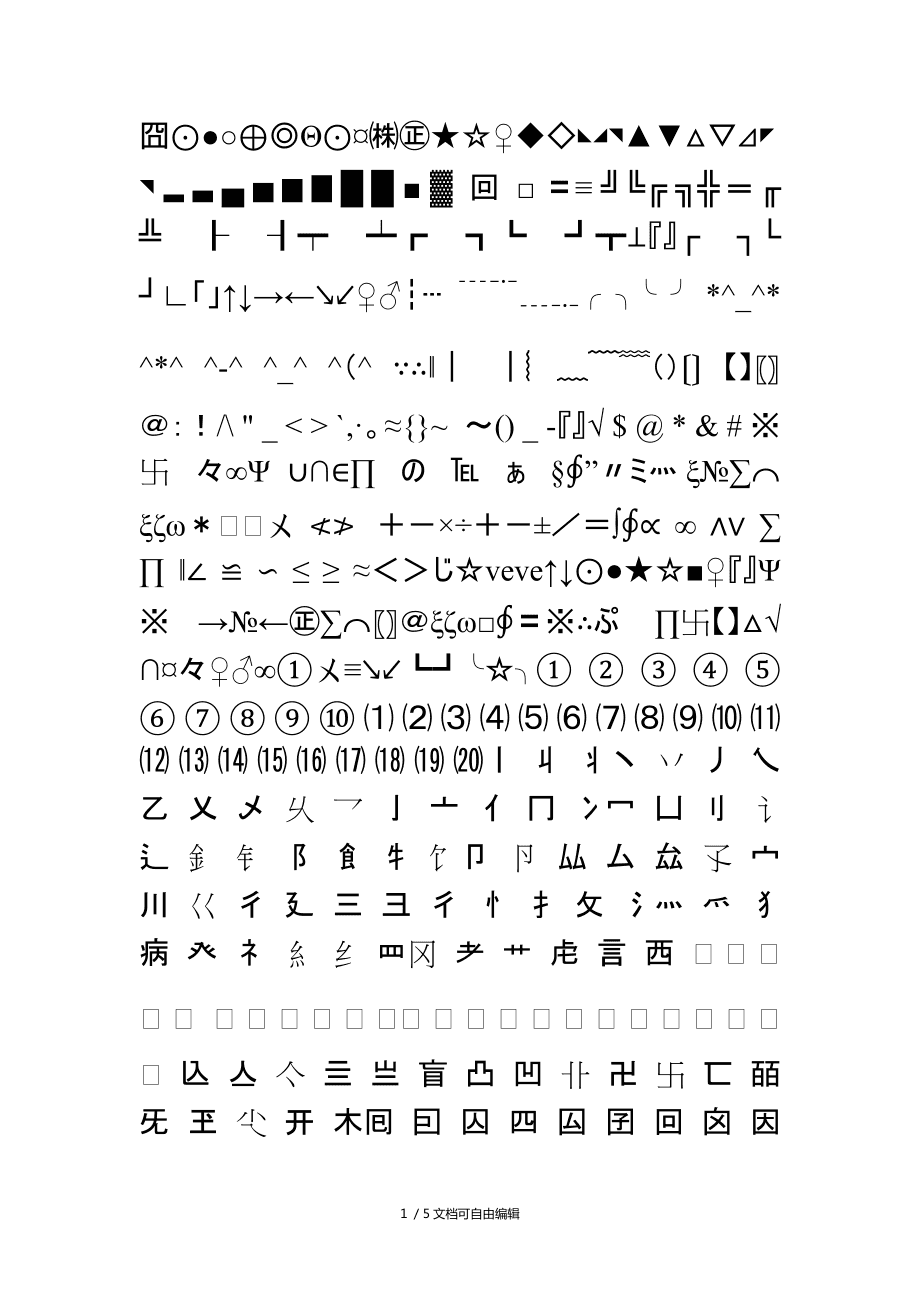 囧⊙●○⊕◎Θ⊙¤㈱㊣★☆♀◆◇◣◢◥▲▼△▽⊿◤
◥▂▃▄▅▆▇██■▓ 回 □ 〓≡╝╚╔╗╬═╓
╩ ┠ ┨┯ ┷┏ ┓┗ ┛┳⊥『』┌ ┐└
┘∟「」↑↓→←↘↙♀♂┇┅ ﹉﹊﹍﹎╭ ╮╰ ╯ *^_^*
^*^ ^-^ ^_^ ^(^ ∵∴‖｜ ｜︴ ﹏﹋﹌（）〔〕【】〖〗
＠：！/\ " _ < > `,·。≈{}~ ～() _ -『』√ $ @ * & # ※
卐 々∞Ψ ∪∩∈∏ の ℡ ぁ §∮”〃ミ灬 ξ№∑⌒
ξζω＊□□㐅 ≮≯ ＋－×÷＋－±／＝∫∮∝ ∞ ∧∨ ∑
∏ ‖∠ ≌ ∽ ≤ ≥ ≈＜＞じ☆veve↑↓⊙●★☆■♀『』Ψ
※ →№←㊣∑⌒〖〗＠ξζω□∮〓※∴ぷ ∏卐【】△√
∩¤々♀♂∞①㐅≡↘↙┗┛╰☆╮① ② ③ ④ ⑤
⑥ ⑦ ⑧ ⑨ ⑩ ⑴ ⑵ ⑶ ⑷ ⑸ ⑹ ⑺ ⑻ ⑼ ⑽ ⑾
⑿ ⒀ ⒁ ⒂ ⒃ ⒄ ⒅ ⒆ ⒇丨 丩 丬丶 丷 丿 乀
乙 乂 乄 乆 乛 亅 亠 亻 冂 冫冖 凵 刂 讠
辶 釒 钅 阝 飠 牜 饣卩 卪 厸 厶 厽 孓 宀
川 巜 彳 廴 三 彐 彳 忄 扌 攵 氵灬 爫 犭
病 癶 礻 糹 纟 罒冈 耂 艹 虍 言 西 □ □ □
□ □ □ □ □ □ □ □□ □ □ □ □ □ □ □ □ □ □ □
□ 亾 亼 亽 亖 亗 盲 凸 凹 卝 卍 卐 匸 皕
旡 玊 尐 幵 木囘 囙 囚 四 囜 囝 回 囟 因
1 / 5文档可自由编辑